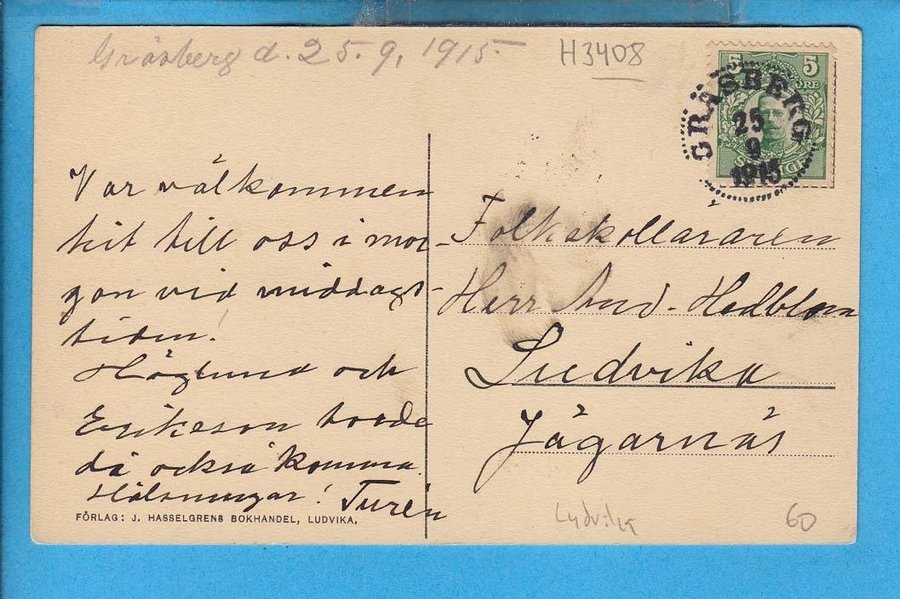 Gräsberg d. 25.9.1915
H3408
5 5
ÖRE
SVERIGE
GRÄSBERG
25
9
1915
Var välkommen
hit till oss i mor-
gon vid middags-
tiden!
Höglund och
Erikeson torde
då också komma
Hälsningar! Turén
FÖRLAG: J. HASSELGRENS BOKHANDEL, LUDVIKA.
Folkskollararen
Herr And. Hedblom
Ludvika
Jägarnäs
Ludvika
60